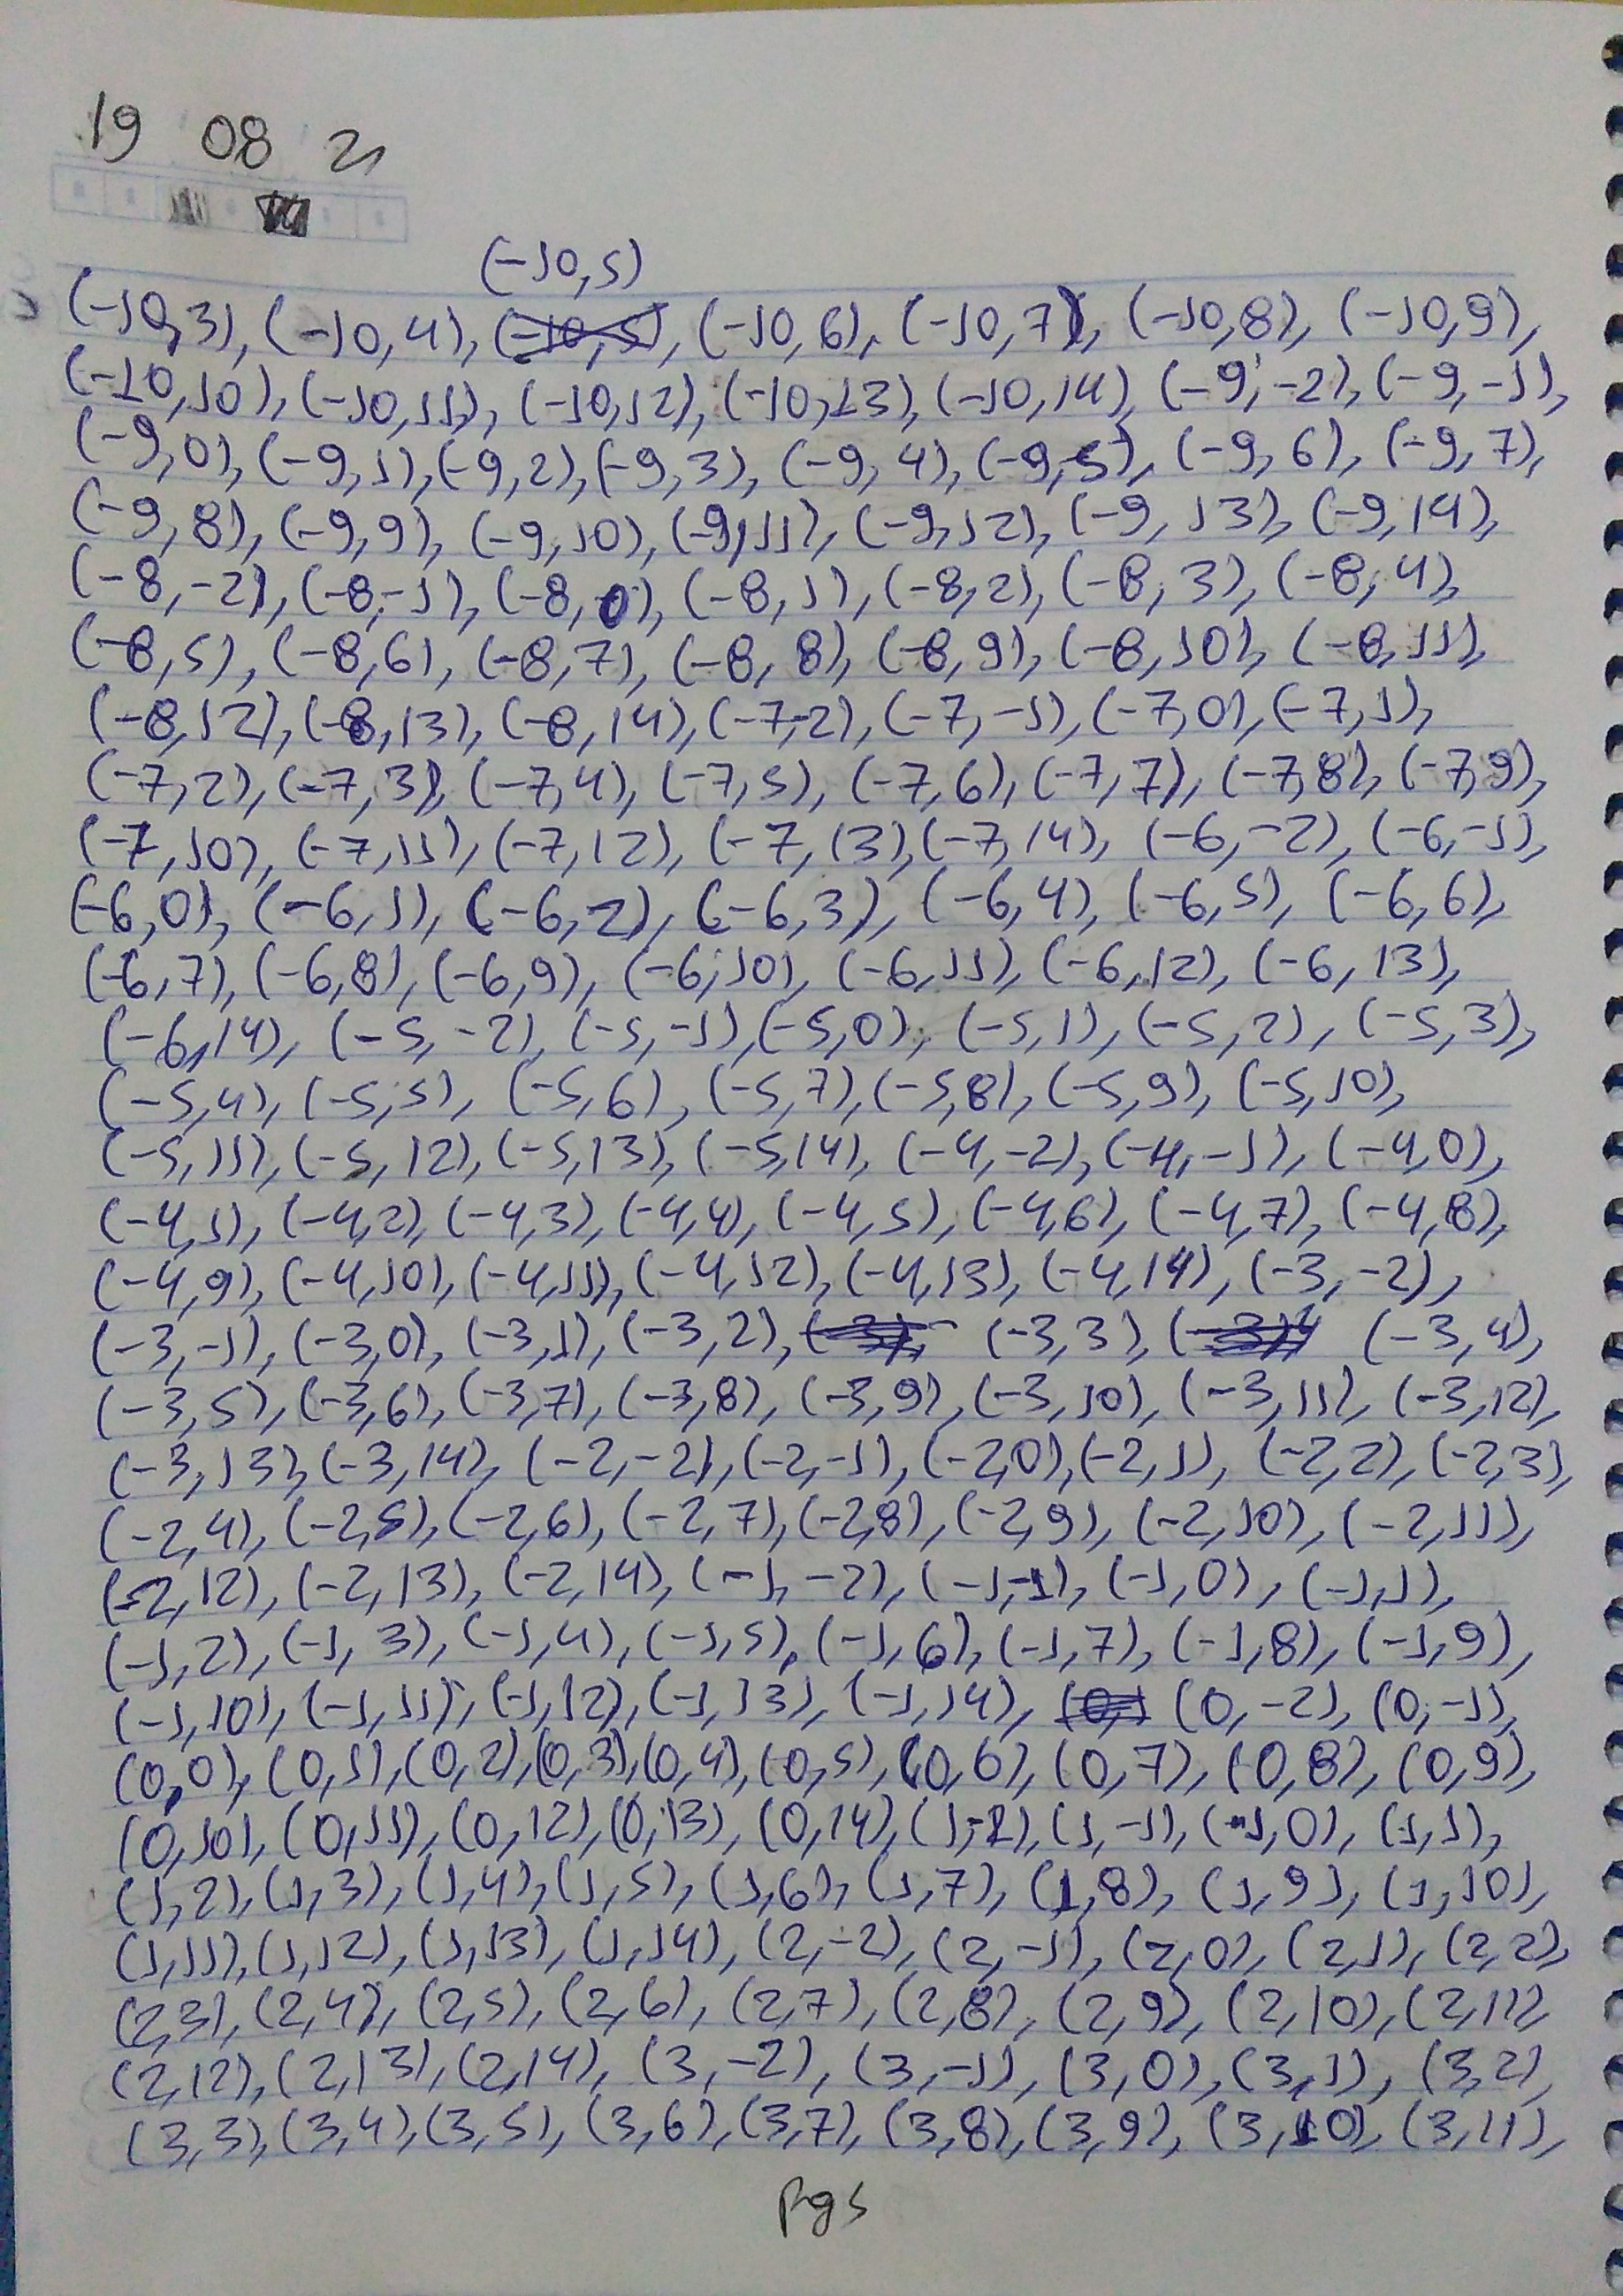 19 08 21
(-10,5)
(-10,3), (-10,4), (-10,5), (-10,6), (-10,7), (-10,8), (-10,9),
(-10,10), (-10,11), (-10,12), (-10,13), (-10,14), (-9,-2), (-9,-1),
(-9,0), (-9,1), (-9,2), (-9,3), (-9,4), (-9,5), (-9,6), (-9,7),
(-9,8), (-9,9), (-9,10), (-9,11), (-9,12), (-9,13), (-9,14),
(-8,-2), (-8,-1), (-8,0), (-8,1), (-8,2), (-8,3), (-8,4),
(-8,5), (-8,6), (-8,7), (-8,8), (-8,9), (-8,10), (-8,11),
(-8,12), (-8,13), (-8,14), (-7,-2), (-7,-1), (-7,0), (-7,1),
(-7,2), (-7,3), (-7,4), (-7,5), (-7,6), (-7,7), (-7,8), (-7,9),
(-7,10), (-7,11), (-7,12), (-7,13), (-7,14), (-6,-2), (-6,-1),
(-6,0), (-6,1), (-6,2), (-6,3), (-6,4), (-6,5), (-6,6),
(-6,7), (-6,8), (-6,9), (-6,10), (-6,11), (-6,12), (-6,13),
(-6,14), (-5,-2), (-5,-1), (-5,0), (-5,1), (-5,2), (-5,3),
(-5,4), (-5,5), (-5,6), (-5,7), (-5,8), (-5,9), (-5,10),
(-5,11), (-5,12), (-5,13), (-5,14), (-4,-2), (-4,-1), (-4,0),
(-4,1), (-4,2), (-4,3), (-4,4), (-4,5), (-4,6), (-4,7), (-4,8),
(-4,9), (-4,10), (-4,11), (-4,12), (-4,13), (-4,14), (-3,-2),
(-3,-1), (-3,0), (-3,1), (-3,2), (-3,3), (-3,4),
(-3,5), (-3,6), (-3,7), (-3,8), (-3,9), (-3,10), (-3,11), (-3,12),
(-3,13), (-3,14), (-2,-2), (-2,-1), (-2,0), (-2,1), (-2,2), (-2,3),
(-2,4), (-2,5), (-2,6), (-2,7), (-2,8), (-2,9), (-2,10), (-2,11),
(-2,12), (-2,13), (-2,14), (-1,-2), (-1,-1), (-1,0), (-1,1),
(-1,2), (-1,3), (-1,4), (-1,5), (-1,6), (-1,7), (-1,8), (-1,9),
(-1,10), (-1,11), (-1,12), (-1,13), (-1,14), (0,-2), (0,-1),
(0,0), (0,1), (0,2), (0,3), (0,4), (0,5), (0,6), (0,7), (0,8), (0,9),
(0,10), (0,11), (0,12), (0,13), (0,14), (1,-2), (1,-1), (1,0), (1,1),
(1,2), (1,3), (1,4), (1,5), (1,6), (1,7), (1,8), (1,9), (1,10),
(1,11), (1,12), (1,13), (1,14), (2,-2), (2,-1), (2,0), (2,1), (2,2),
(2,3), (2,4), (2,5), (2,6), (2,7), (2,8), (2,9), (2,10), (2,11),
(2,12), (2,13), (2,14), (3,-2), (3,-1), (3,0), (3,1), (3,2),
(3,3), (3,4), (3,5), (3,6), (3,7), (3,8), (3,9), (3,10), (3,11),
Pg 5